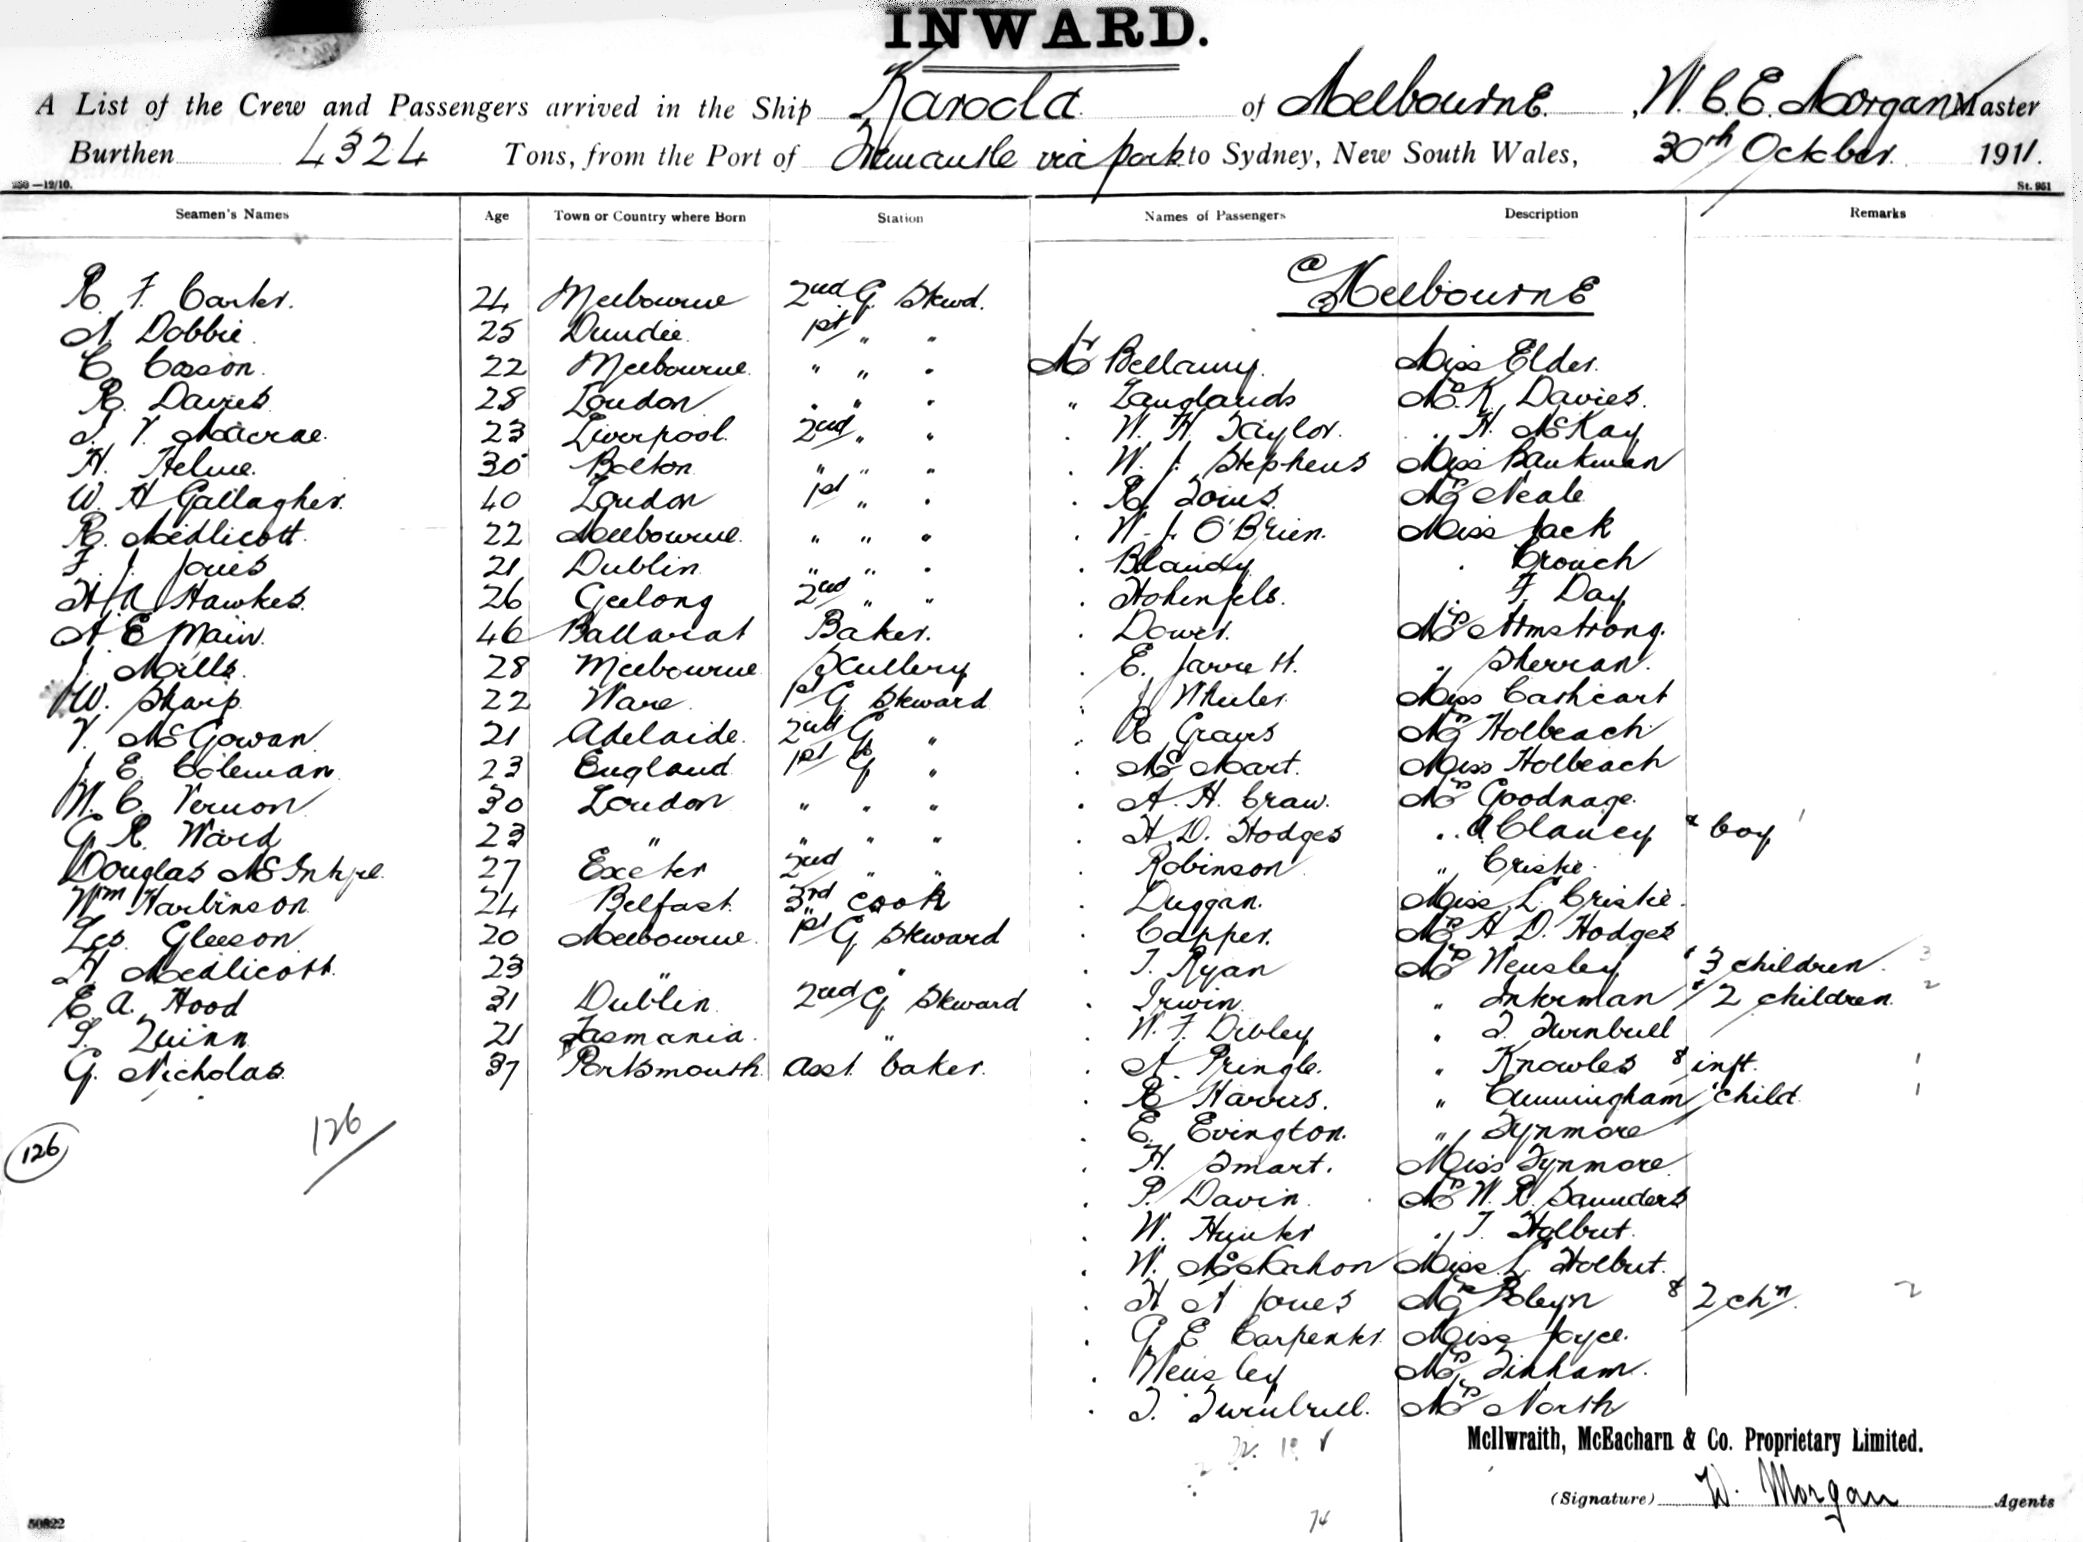 INWARD.
A List of the Crew and Passengers arrived in the Ship Karoola of Melbourne, W. C. E. Morgan Master
Burthen 4324 Tons, from the Port of Fremantle via ports to Sydney, New South Wales, 30th October 1911.
250—12/10. St. 951
Seamen's Names Age Town or Country where Born Station Names of Passengers Description Remarks
@ Melbourne
R. F. Carter. 24 Melbourne 2nd G. Stewd.
A. Dobbie. 25 Dundee. 1st " "
C. Cason. 22 Melbourne. " " " Mr Bellamy. Miss Elder.
R. Davies 28 London. " " " " Langlands Mrs. K. Davies.
J. V. Macrae. 23 Liverpool. 2nd " " . W. H. Taylor. " H. McKay
H. Helme. 30 Bolton. " " " . W. J. Stephens Miss Bankman
W. H Gallagher. 40 London 1st " " . R. Tous. Mrs Neale
R. Medlicott. 22 Melbourne. " " " . W. J. O'Brien. Miss Jack
F. J. Jones 21 Dublin. " " " . Blandy. " Crouch
H. A. Hawkes. 26 Geelong 2nd " " . Hohenfels. " F. Day
A. E Main. 46 Ballarat Baker. . Dower. Mrs Armstrong.
J. Mills. 28 Melbourne Scullery . E. Jarrett. " Sherran.
W. Sharp. 22 Ware. 1st G Steward . J Wheeler. Miss Cathcart
V. McGowan. 21 Adelaide. 2nd G " . R Graves Mrs Holbeach
J. E. Coleman. 23 England 1st G " . McMart. Miss Holbeach
W. C. Vernon 30 London " " " . A. H. Craw. Mrs Goodnage.
G. R. Ward 23 " " " " . H. D. Hodges " A Clancy & boy 1
Douglas McIntyre. 27 Exeter 2nd " " . Robinson " Criskie.
Wm Harbinson 24 Belfast. 3rd Cook . Duggan. Miss L. Criskie.
Les. Gleeson 20 Melbourne. 1st G Steward . Capper. Mrs H. D. Hodges
H. Medlicott. 23 " " . T. Ryan Mrs Wensley & 3 children. 3
E. A. Hood 31 Dublin. 2nd G Steward . Irwin. " Inkerman & 2 children. 2
S. Quinn. 21 Tasmania. " . W. F. Dibley " T. Turnbull
G. Nicholas. 37 Portsmouth. Asst. baker. . A. Pringle. " Knowles & inft. 1
. R Harris. " Cunningham & child. 1
126 126 . E. Evington. " Tynmore
. H. Smart. Miss Tynmore.
. P. Davin. Mrs W. R. Saunders
. W. Hunter " T. Holbut.
. W. McMahon Miss L. Holbut.
. H A Jones Mrs Boleyn & 2 chn. 2
. G E Carpenter. Miss Joyce.
. Wensley Mrs. Tinham.
. T. Turnbull. Mrs North
McIlwraith, McEacharn & Co. Proprietary Limited.
(Signature) W. Morgan Agents
74
50822